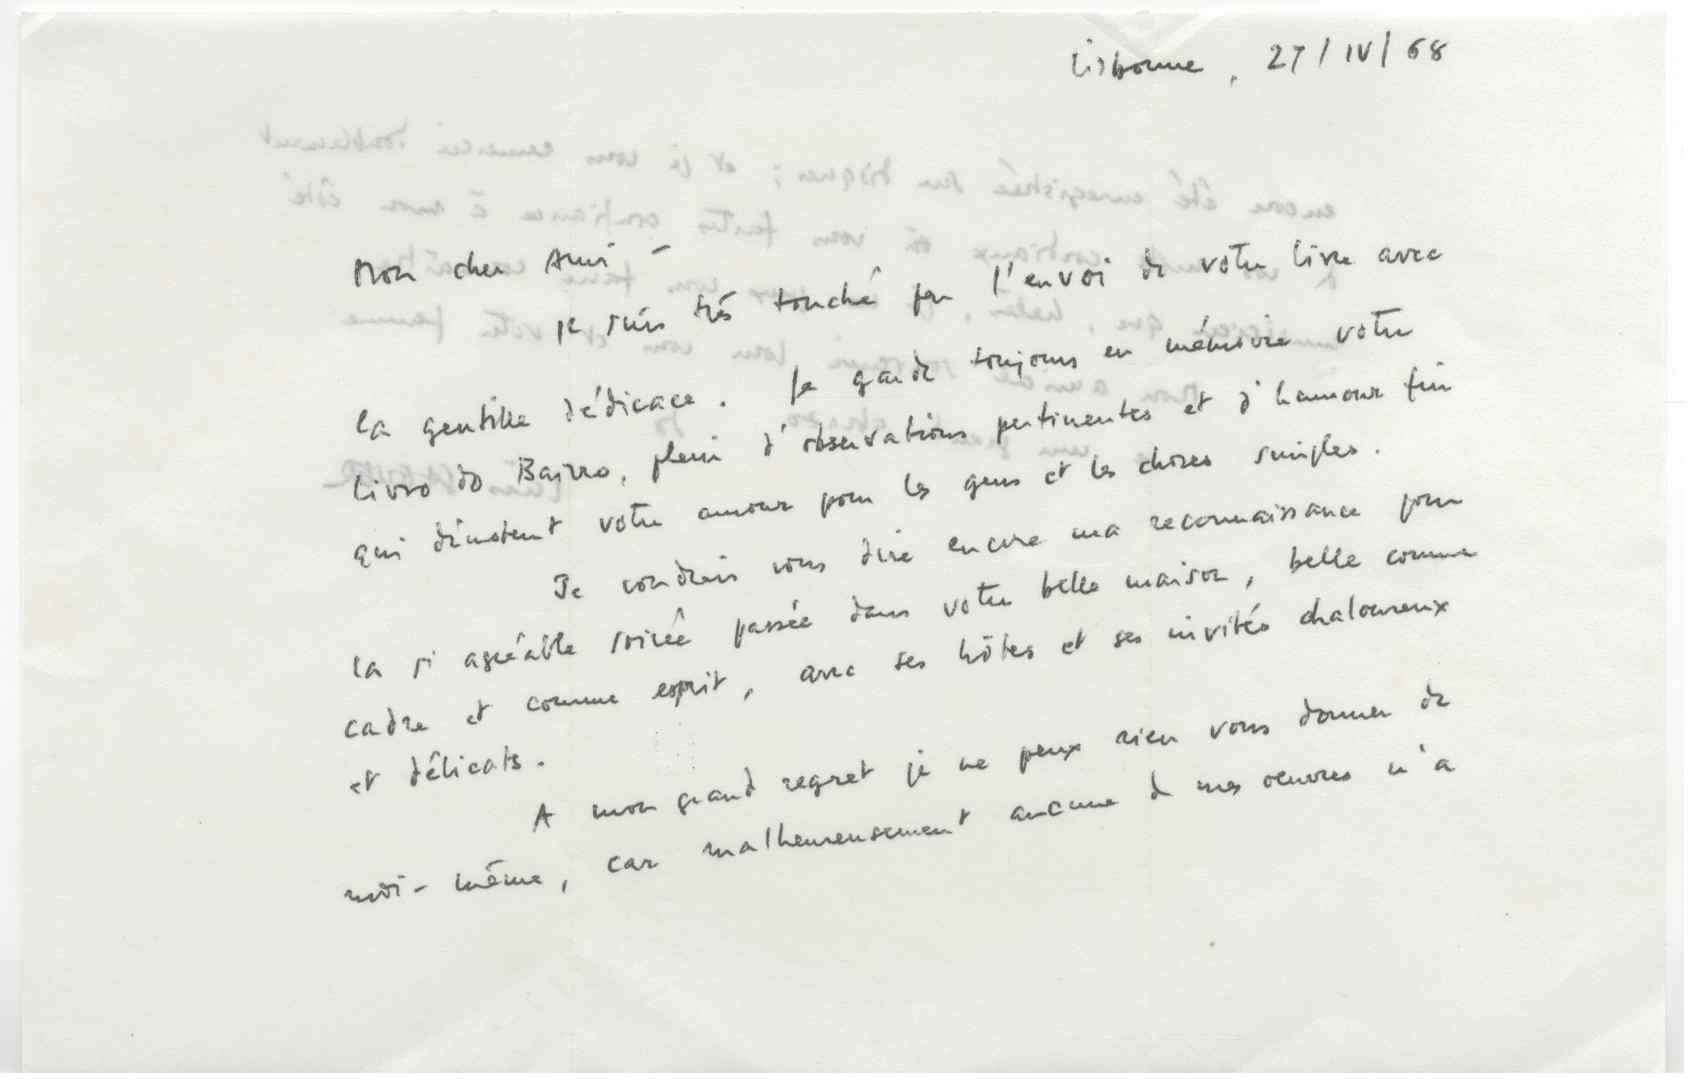 Lisbonne, 27/IV/68
Mon cher Ami -
je suis très touché par l'envoi de votre livre avec
la gentille dédicace. Je garde toujours en mémoire votre
livro do Bairro, plein d'observations pertinentes et d'humour fin
qui dénotent votre amour pour les gens et les choses simples.
Je voudrais vous dire encore ma reconnaissance pour
la si agréable soirée passée dans votre belle maison, belle comme
cadre et comme esprit, avec ses hôtes et ses invités chaloureux
et délicats.
A mon grand regret je ne peux rien vous donner de
moi-même, car malheureusement aucune de mes oeuvres n'a